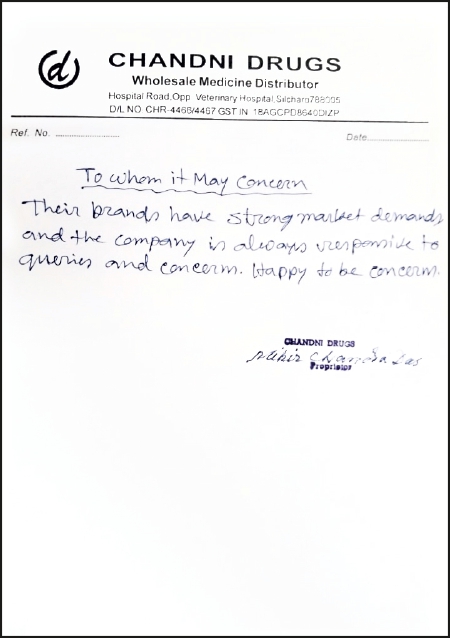 d
CHANDNI DRUGS
Wholesale Medicine Distributor
Hospital Road, Opp. Veterinary Hospital, Silchar-788005
D/L NO. CHR-4466/4467 GST IN. 18AGCPD8640DIZP
Ref. No. ........................
Date........................
To whom it May Concern
Their brands have strong market demands
and the company is always responsive to
queries and concern. Happy to be concern.
CHANDNI DRUGS
Mihir Chandra Das
Proprietor